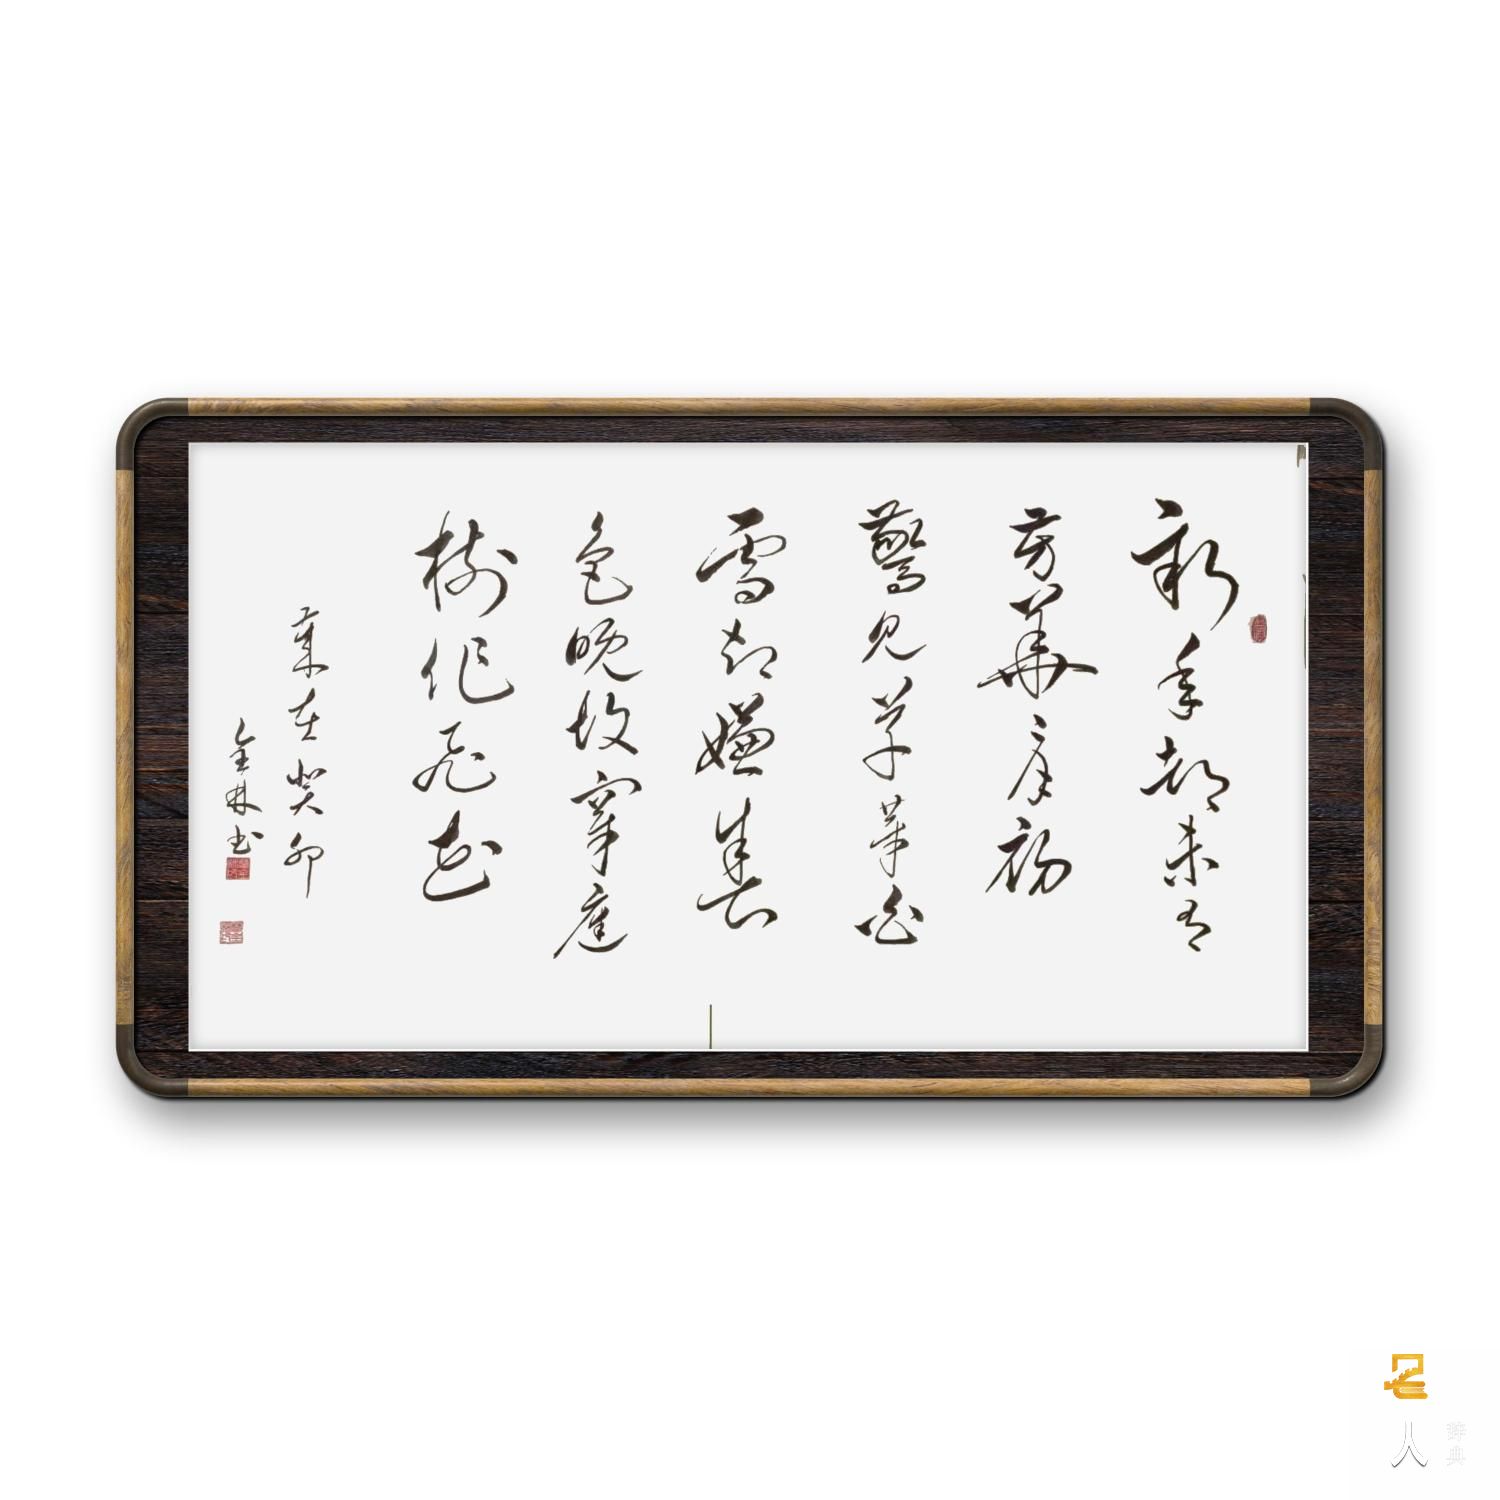 新年都未有
芳華二月初
驚見草芽白
雪却嫌春
色晚故穿庭
樹作飛花
歲在癸卯
金林书
名
人
辞典